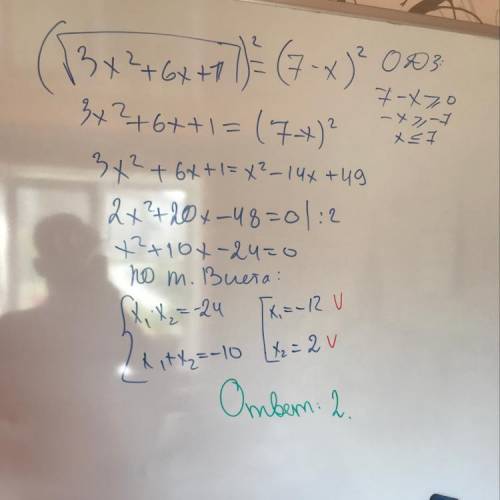 (√3x²+6x+1)² = (7-x)² ОДЗ:
7-x≥0
-x≥-7
x≤7
3x²+6x+1 = (7-x)²
3x²+6x+1=x²-14x+49
2x²+20x-48=0|:2
x²+10x-24=0
по т. Виета:
{x₁·x₂=-24 [x₁=-12 V
x₁+x₂=-10 x₂=2 V
Ответ: 2.